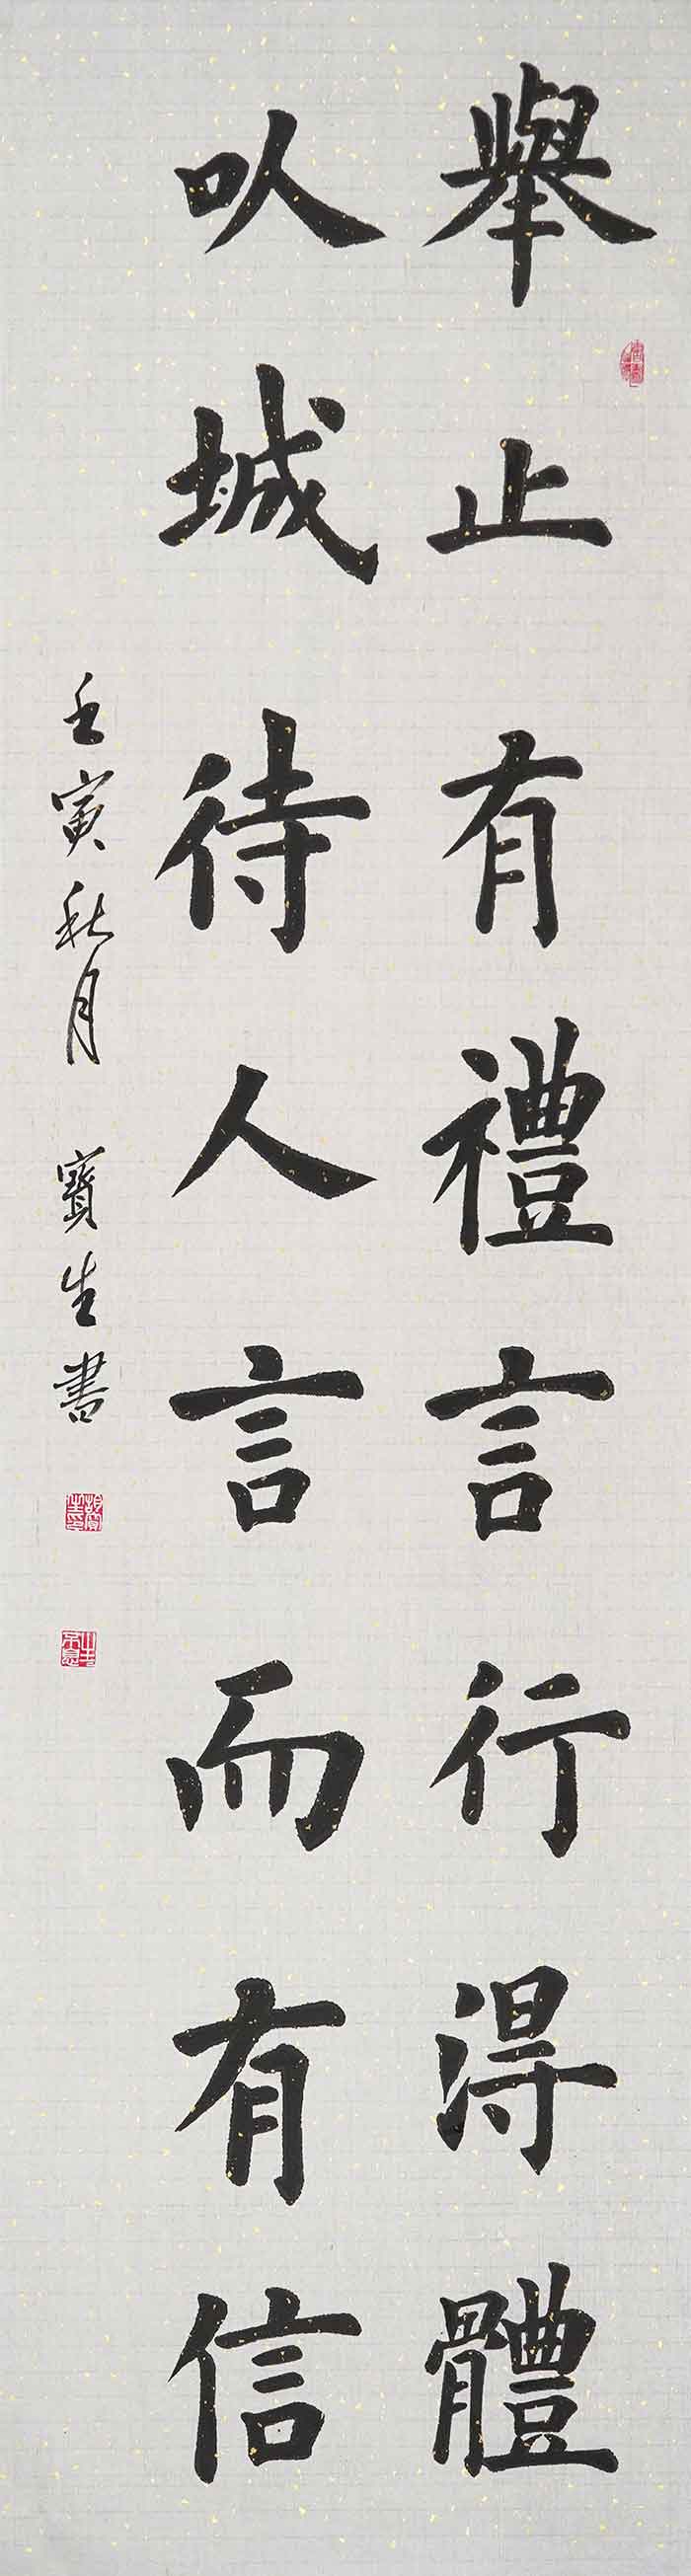 舉止有禮言行得體
以城待人言而有信
壬寅秋月 寶生書